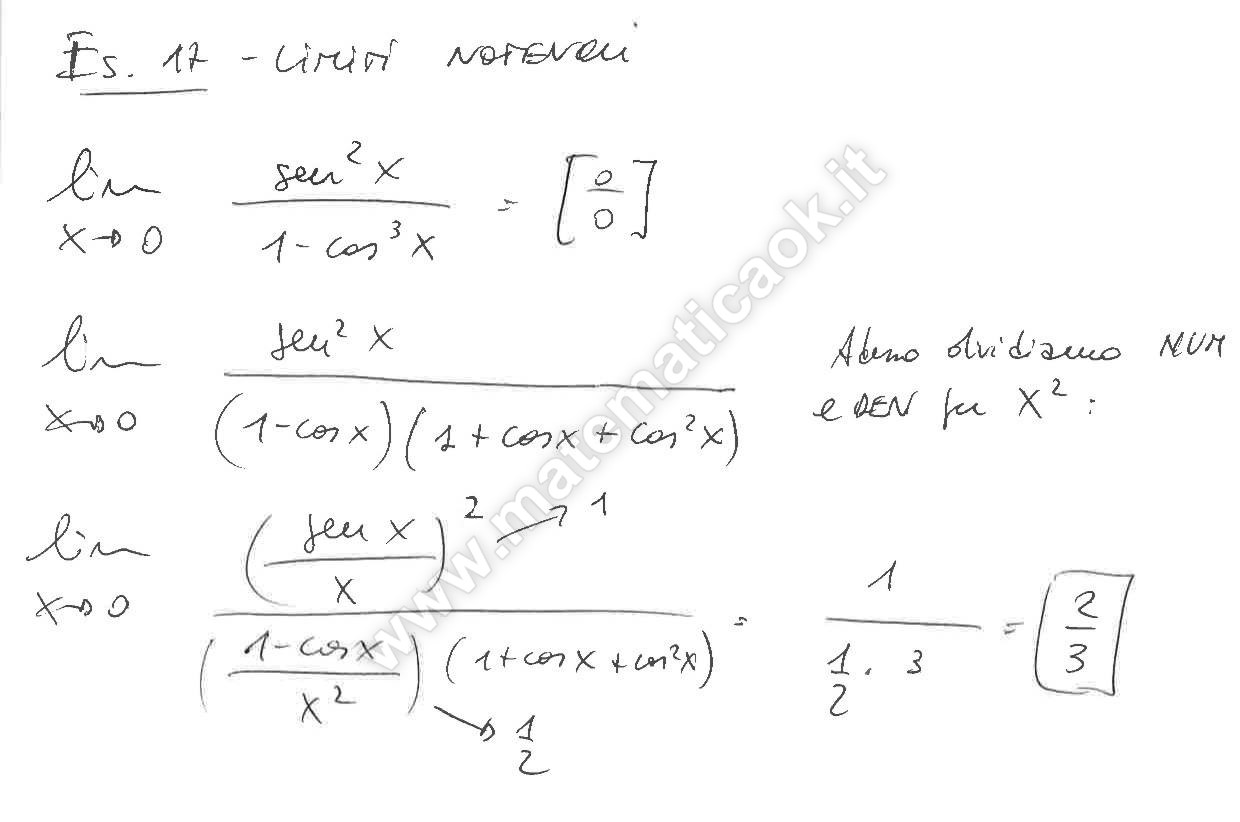 Es. 17 - Limiti notevoli
lim x→0 sen²x / (1 - cos³x) = [0/0]
lim x→0 sen²x / ((1 - cos x)(1 + cos x + cos²x)) dividiamo NUM
e DEN per x²:
lim x→0 (sen x / x)² → 1 / (((1 - cos x) / x²) (1 + cos x + cos²x)) = 1 / (1/2 · 3) = 2/3
→ 1/2
www.matematicaok.it